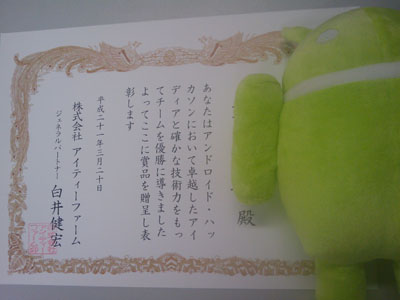 殿
あなたはアンドロイド・ハッ
カソンにおいて卓越したアイ
ディアと確かな技術力をもっ
てチームを優勝に導きました
よってここに賞品を贈呈し表
彰します
平成二十一年三月二十日
株式会社 アイティーファーム
ジェネラルパートナー 白井健宏